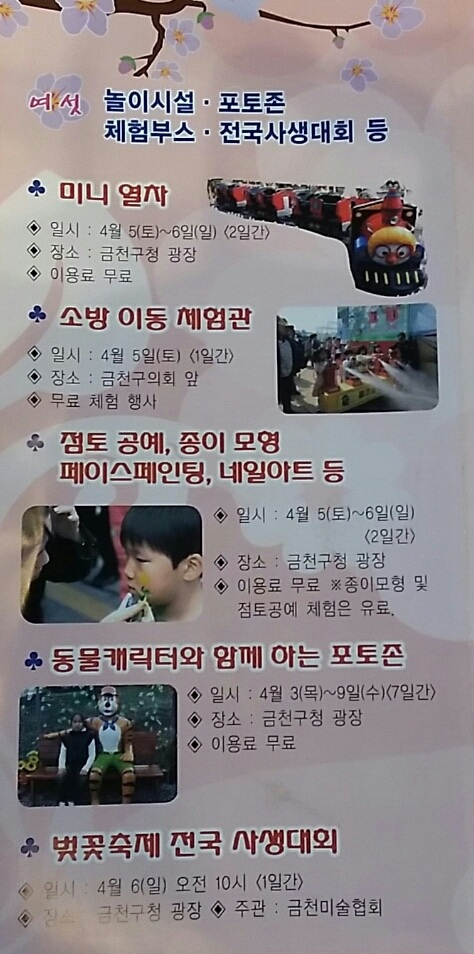 여섯 놀이시설 · 포토존
체험부스 · 전국사생대회 등
♣ 미니 열차
◈ 일시 : 4월 5(토)~6일(일) 〈2일간〉
◈ 장소 : 금천구청 광장
◈ 이용료 무료
♣ 소방 이동 체험관
◈ 일시 : 4월 5일(토) 〈1일간〉
◈ 장소 : 금천구의회 앞
◈ 무료 체험 행사
♣ 점토 공예, 종이 모형
페이스페인팅, 네일아트 등
◈ 일시 : 4월 5(토)~6일(일)
〈2일간〉
◈ 장소 : 금천구청 광장
◈ 이용료 무료 ※종이모형 및
점토공예 체험은 유료.
♣ 동물캐릭터와 함께 하는 포토존
◈ 일시 : 4월 3(목)~9일(수)〈7일간〉
◈ 장소 : 금천구청 광장
◈ 이용료 무료
♣ 벚꽃축제 전국 사생대회
◈ 일시 : 4월 6(일) 오전 10시 〈1일간〉
◈ 장소 : 금천구청 광장 ◈ 주관 : 금천미술협회